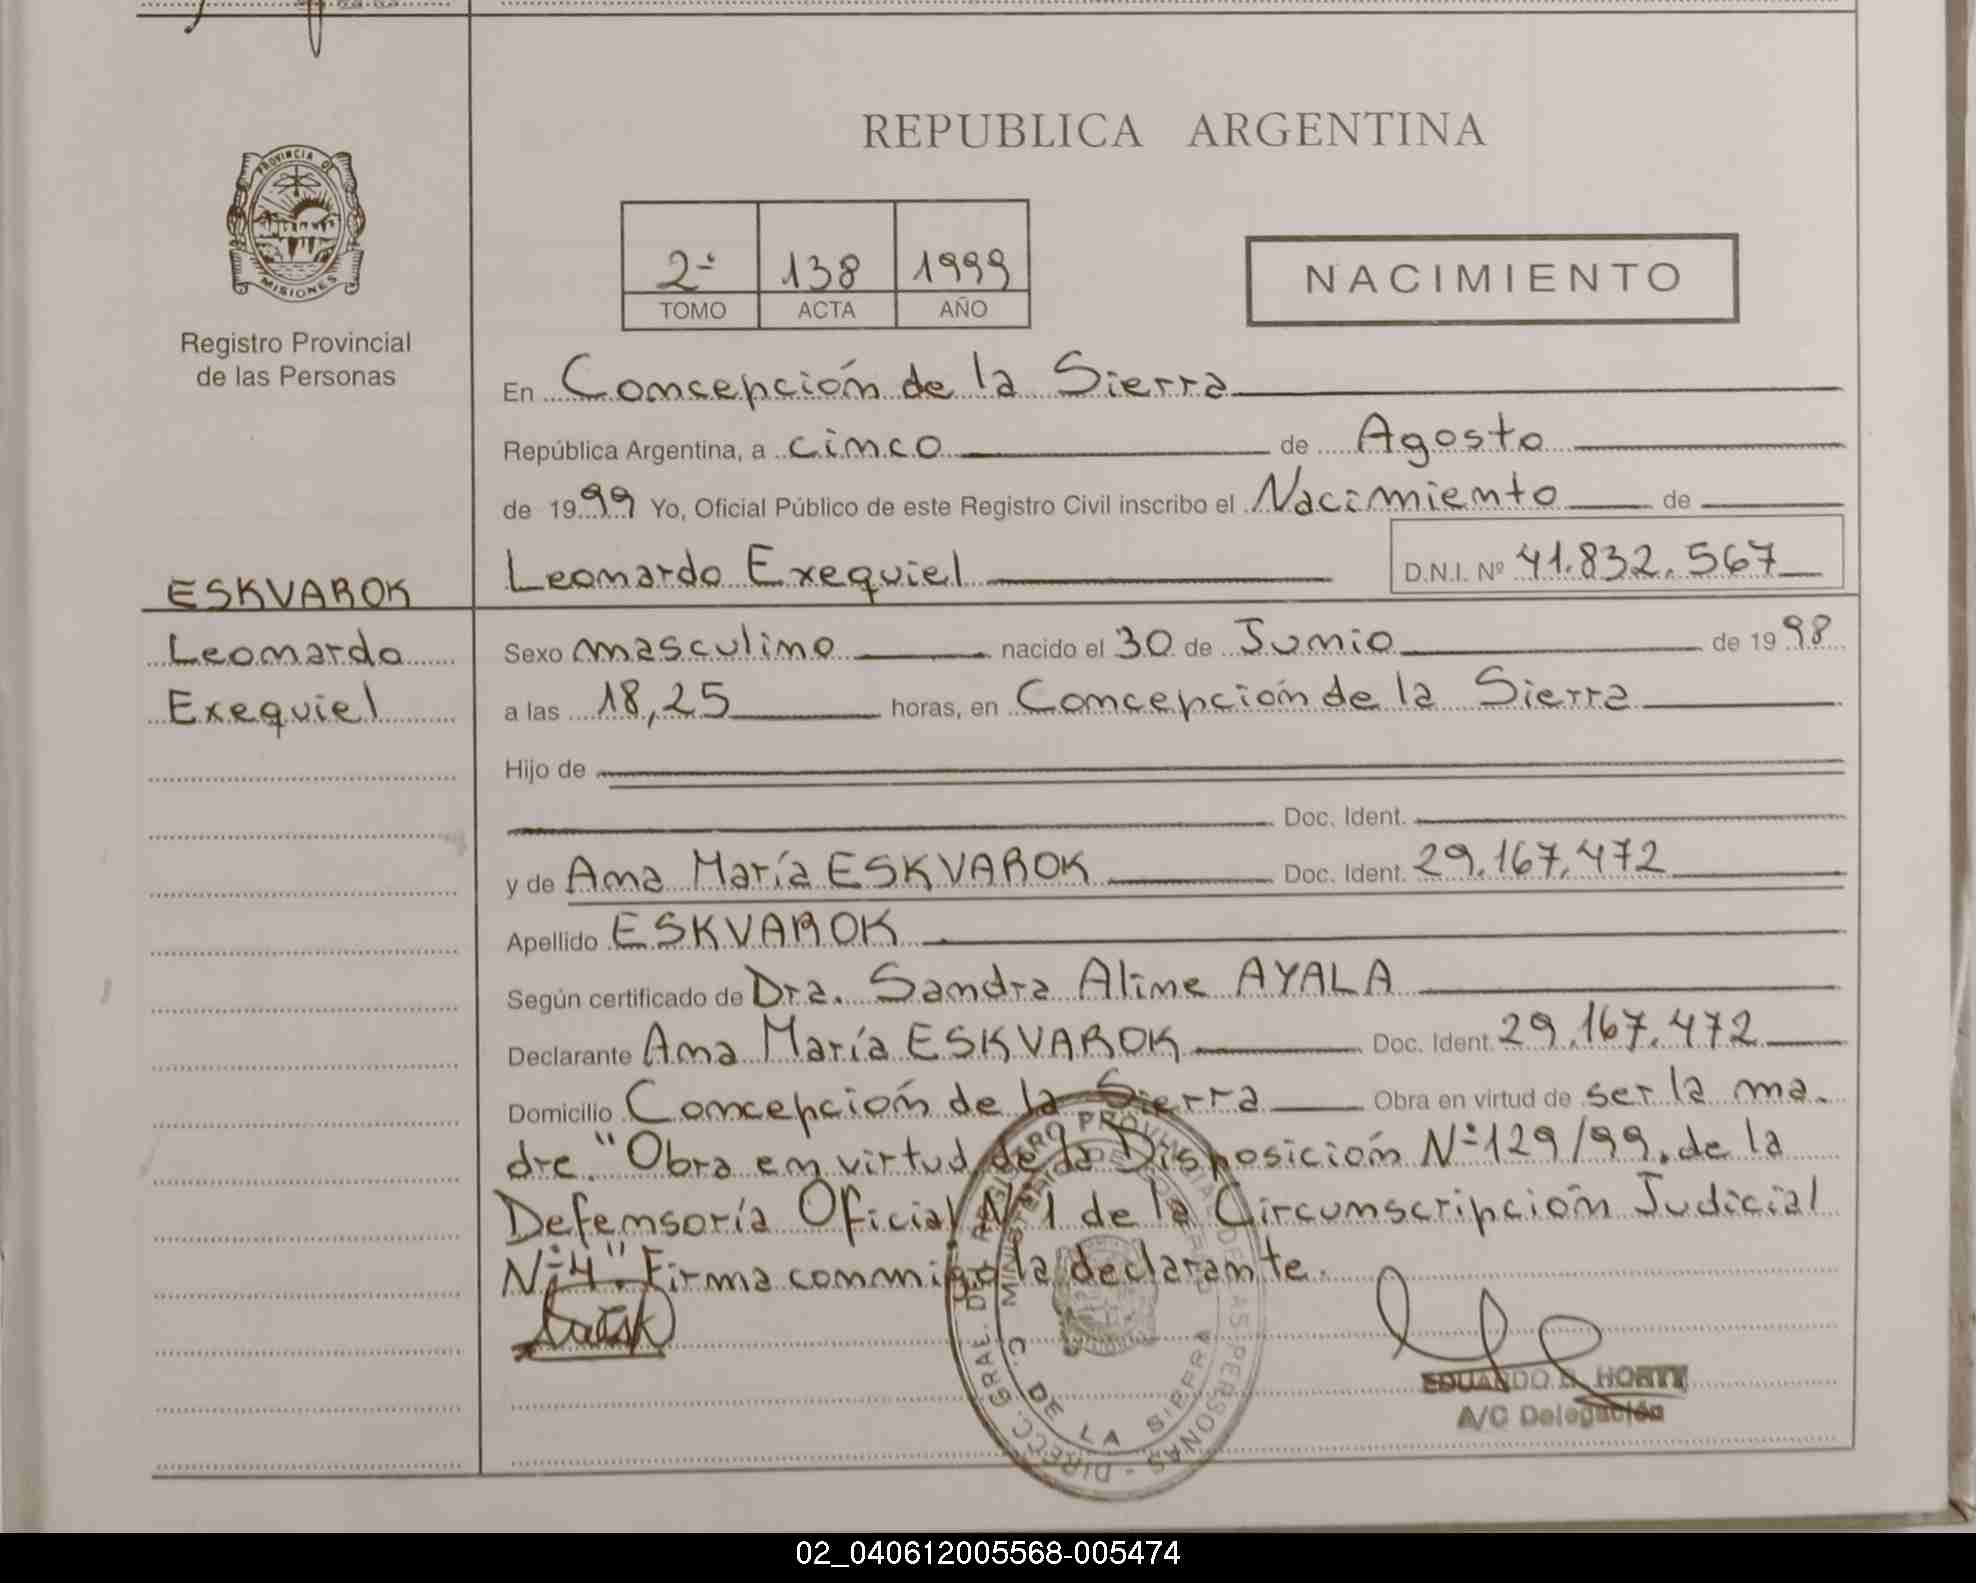 REPUBLICA ARGENTINA
PROVINCIA DE
MISIONES
Registro Provincial
de las Personas
2º 138 1999
TOMO ACTA AÑO
NACIMIENTO
En Concepción de la Sierra
República Argentina, a cinco de Agosto
de 1999 Yo, Oficial Público de este Registro Civil inscribo el Nacimiento de
Leonardo Exequiel D.N.I. Nº 41.832.567
ESKVAROK
Leonardo
Exequiel
Sexo masculino nacido el 30 de Junio de 1998
a las 18,25 horas, en Concepción de la Sierra
Hijo de
Doc. Ident.
y de Ana María ESKVAROK Doc. Ident. 29.167.472
Apellido ESKVAROK
Según certificado de Dra. Sandra Aline AYALA
Declarante Ana María ESKVAROK Doc. Ident. 29.167.472
Domicilio Concepción de la Sierra Obra en virtud de ser la ma-
dre. "Obra en virtud de la Disposición Nº 129/99, de la
Defensoría Oficial Nº 1 de la Circunscripción Judicial
Nº 4". Firma conmigo la declarante.
DIRECC. GRAL. DEL REGISTRO PROVINCIAL DE LAS PERSONAS -
MINISTERIO DE GOBIERNO
C. DE LA SIERRA
EDUARDO HORTT
A/C Delegación
02_040612005568-005474